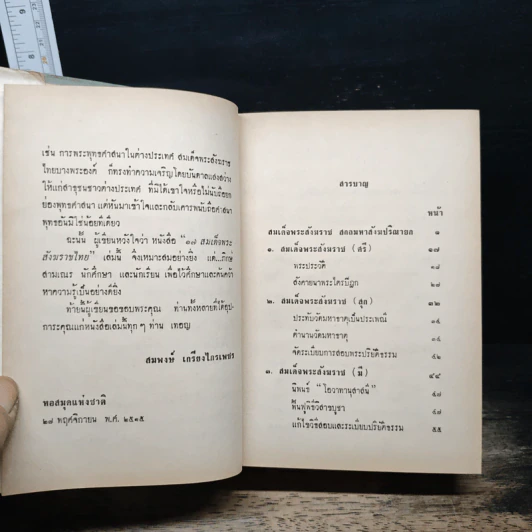 เช่น การพระพุทธศาสนาในต่างประเทศ สมเด็จพระสังฆราช
ไทยบางพระองค์ ก็ทรงทำความเจริญโดยบันดาลแสงสว่าง
ให้แก่สาธุชนชาวต่างประเทศ ที่มิได้เข้าใจหรือไม่นับถือยก
ย่องพุทธศาสนา แต่หันมาเข้าใจและกลับเคารพนับถือศาสนา
พุทธอันมิใช่น้อยทีเดียว
ฉะนั้น ผู้เขียนหวังใจว่า หนังสือ "๑๗ สมเด็จพระ
สังฆราชไทย" เล่มนี้ จึงเหมาะสมอย่างยิ่ง แด่...ภิกษุ
สามเณร นักศึกษา และนักเรียน เพื่อใช้ศึกษาและค้นคว้า
หาความรู้เป็นอย่างดียิ่ง
ท้ายนี้ผู้เขียนขอขอบพระคุณ ท่านทั้งหลายที่ได้อุป-
การะคุณแก่หนังสือเล่มนี้ทุก ๆ ท่าน เทอญ
สมพงษ์ เกรียงไกรเพชร
หอสมุดแห่งชาติ
๒๗ พฤศจิกายน พ.ศ. ๒๕๑๕
สารบาญ
หน้า
สมเด็จพระสังฆราช สกลมหาสังฆปริณายก ๑
๑. สมเด็จพระสังฆราช (ศรี) ๑๗
พระประวัติ ๑๘
สังคายนาพระไตรปิฎก
๒. สมเด็จพระสังฆราช (สุก) ๓๒
ประทับวัดมหาธาตุเป็นประเพณี ๓๔
ตำนานวัดมหาธาตุ ๓๕
จัดระเบียบการสอบพระปริยัติธรรม ๔๒
๓. สมเด็จพระสังฆราช (มี) ๔๔
นิพนธ์ "โอวาทานุสาสนี" ๔๗
ฟื้นฟูพิธีวิสาขบูชา ๔๗
แก้ไขวิธีสอบและระเบียบปริยัติธรรม ๕๕